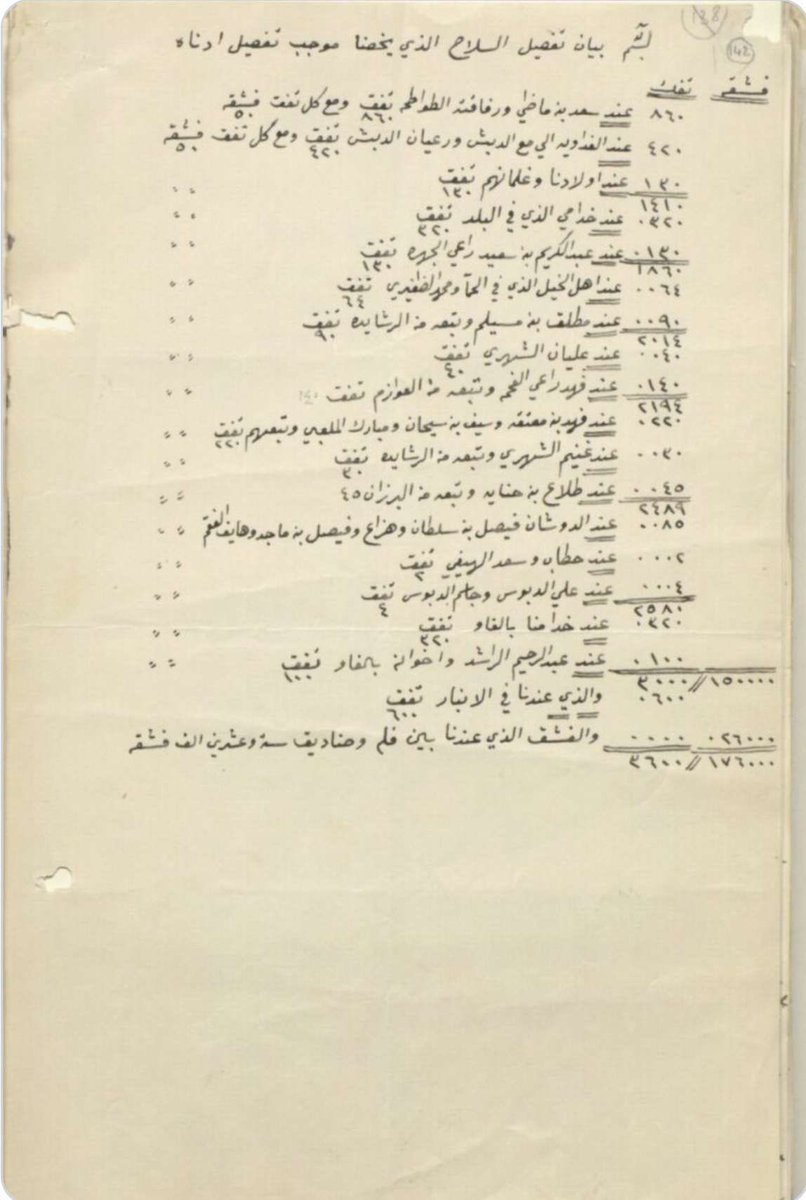 128
142
بسم الله بيان تفصيل السلاح الذي يخصنا موجب تفصيل ادناه
تفك فشقه
٨٦٠ عند سعد بن ماضي ورفاقته الطواطحه تفق ٨٦٠ ومع كل تفق فشقه ٥٠
٤٢٠ عند الفداويه الي مع الدبش ورعيان الدبش تفق ٤٢٠ ومع كل تفق فشقه ٥٠
١٣٠ عند اولادنا وغلمانهم تفق ١٣٠ " "
١٤١٠
٠٣٢٠ عند خدامي الذي في البلد تفق ٣٢٠ " "
٠١٣٠ عند عبدالكريم بن سعيد راعي الجهره تفق ١٣٠ " "
١٨٦٠
٠٠٦٤ عند اهل الخيل الذي في ومحمد الظفيري تفق ٦٤ " "
٠٠٩٠ عند مطلق بن مسيلم وتبعه من الرشايده تفق ٩٠ " "
٢٠١٤
٠٠٤٠ عند عليان الشهري تفق ٤٠ " "
٠١٤٠ عند فهد راعي الفحم وتبعه من العوازم تفق ١٤٠ " "
٢١٩٤
٠٢٢٠ عند فهد بن معتقه وسيف بن سيحان ومبارك الملعبي وتبعهم تفق ٢٢٠ " "
٠٠٣٠ عند غنيم الشهري وتبعه من الرشايده تفق ٣٠ " "
٠٠٤٥ عند طلاع بن حنايه وتبعه من البرزان ٤٥ " "
٢٤٨٩
٠٠٨٥ عند الدوشان فيصل بن سلطان وهزاع وفيصل بن ماجد وهايف الفغم " "
٠٠٠٢ عند حطاب وسعد الهيفي تفق ٢ " "
٠٠٠٤ عند علي الدبوس وجاسم الدبوس تفق ٤ " "
٢٥٨٠
٠٣٢٠ عند خدامنا بالفاو تفق ٣٢٠ " "
٠١٠٠ عند عبدالرحيم الراشد واخوانه بالفاو تفق ١٠٠ " "
٣٠٠٠ // ١٥٠٠٠٠
٠٦٠٠ والذي عندنا في الانبار تفق ٦٠٠
٠٠٠٠ ٠٢٦٠٠٠ والفشق الذي عندنا بين فلم وصناديق ستة وعشرين الف فشقه
٣٦٠٠ // ١٧٦٠٠٠